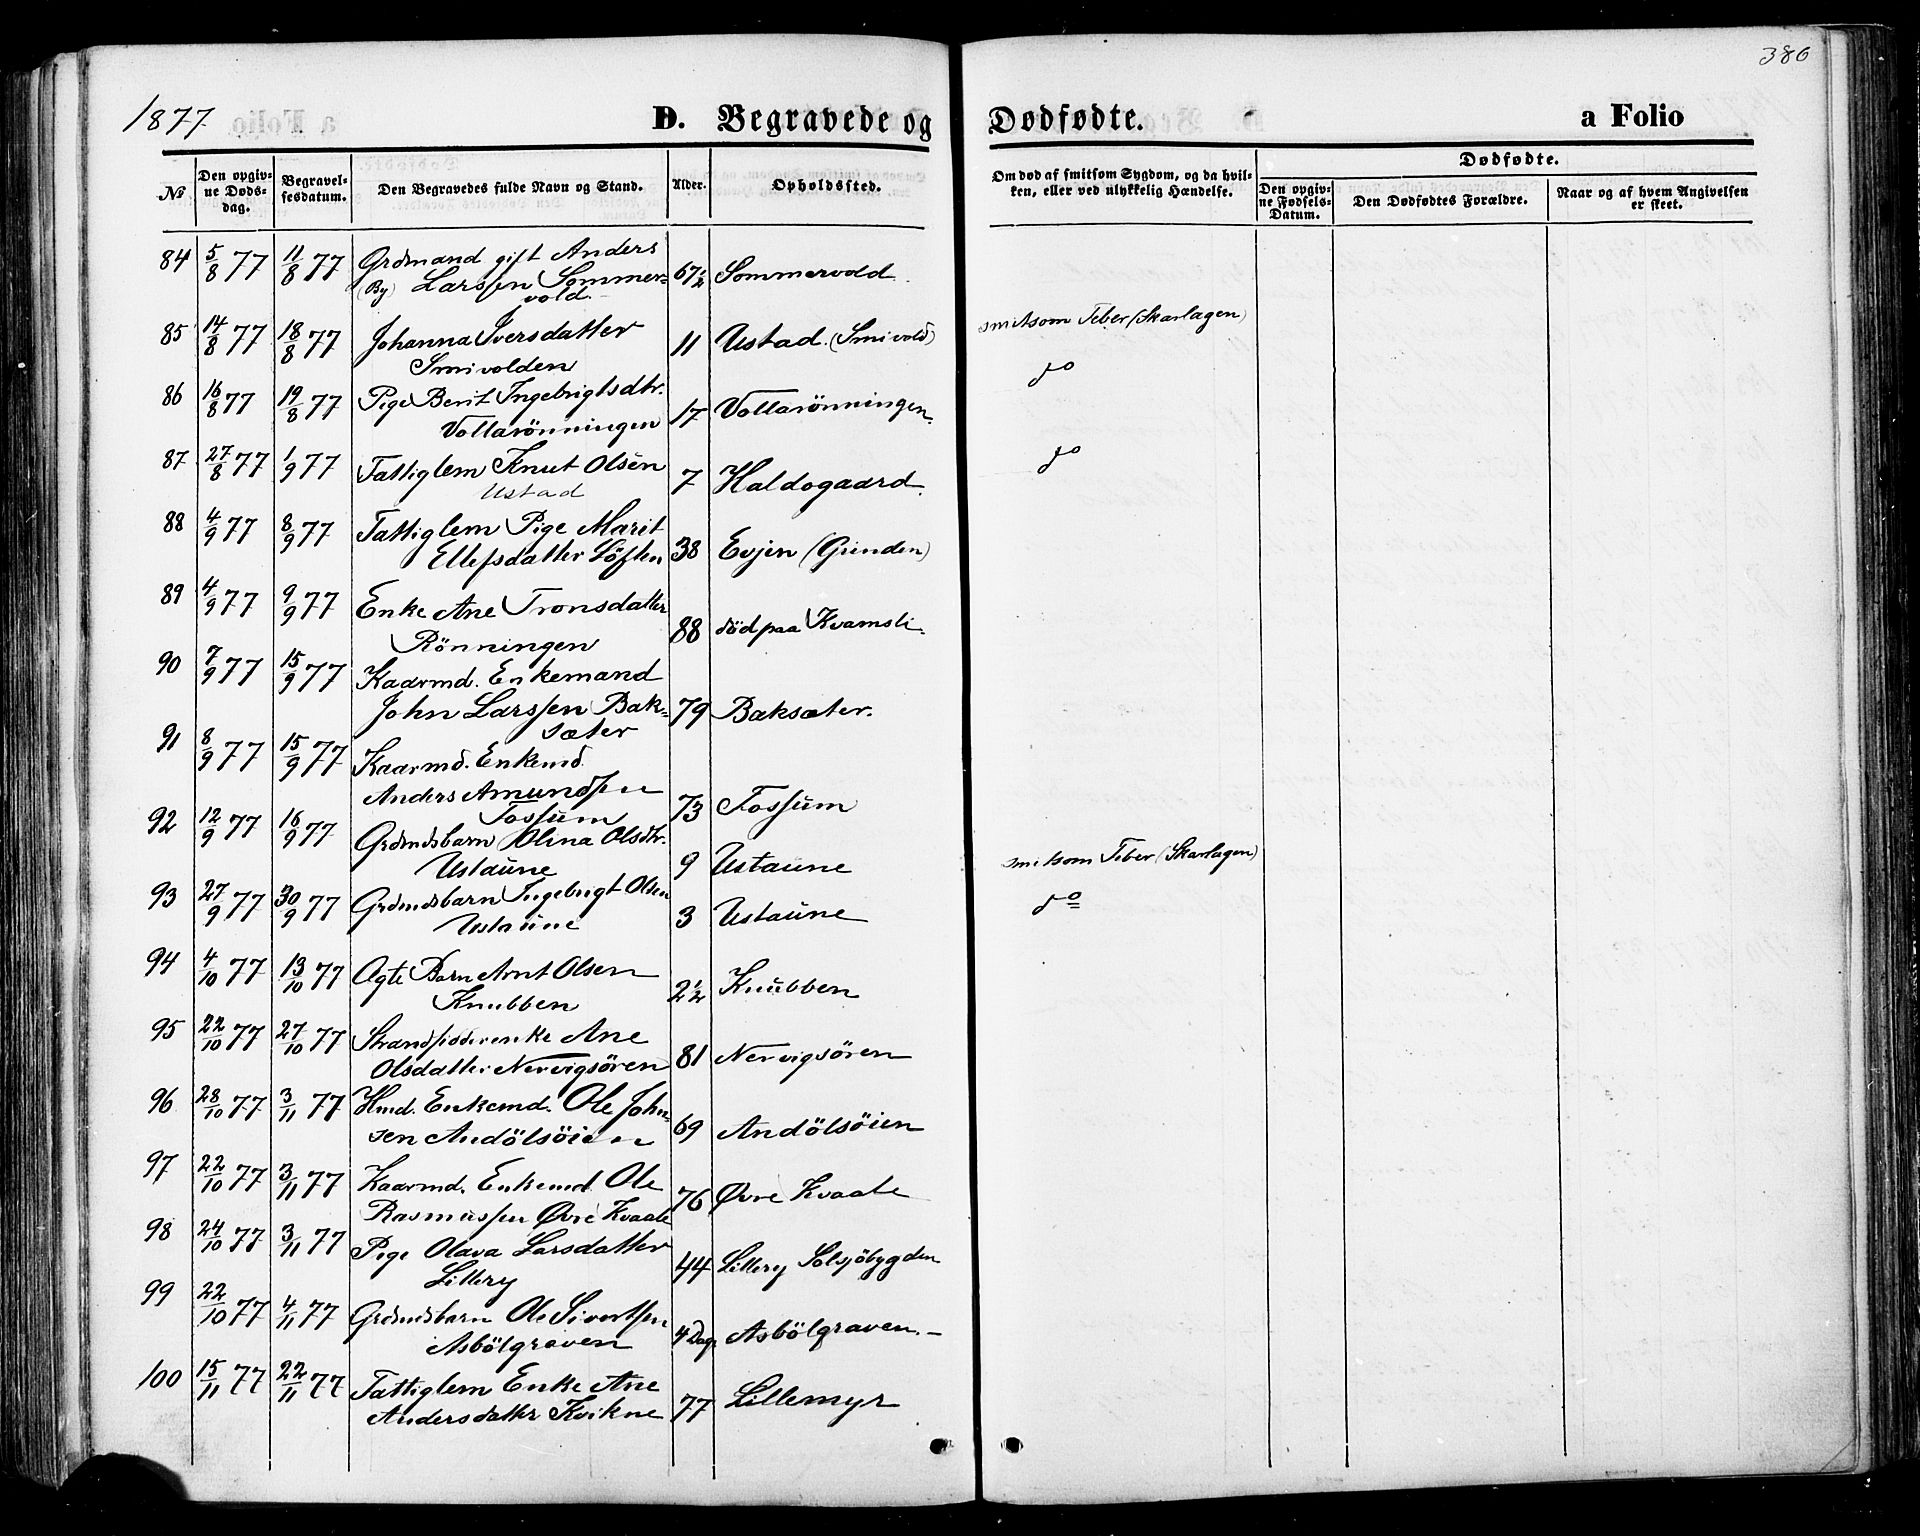 386
1877 D. Begravede og Dødfødte. a Folio
Dødfødte.
№ Den opgivne Dødsdag. Begravelsesdatum. Den Begravedes fulde Navn og Stand. Alder. Opholdssted. Om død af smitsom Sygdom, og da hvilken, eller ved ulykkelig Hændelse. Den opgivne Fødsels-Datum. Den Dødfødtes Forældre. Naar og af hvem Angivelsen er skeet.
84 5/8 77 11/8 77 Grdmand gift Anders
(By) Larssen Sommer= 67½ Sommervold
vold.
85 14/8 77 18/8 77 Johanna Iversdatter 11 Ustad (Smivold) smitsom Feber (Skarlagen)
Smivolden
86 16/8 77 19/8 77 Pige Berit Ingebrigtsdtr. 17 Vollarönningen do
Vollarönningen
87 27/8 77 1/9 77 Fattiglem Knut Olsen 7 Haldogaard do
Ustad
88 4/9 77 8/9 77 Fattiglem Pige Marit
Ellefsdatter Löften 38 Evjen (Grinden)
89 4/9 77 9/9 77 Enke Ane Tronsdatter 88 död paa Kvamsli
Rönningen
90 7/9 77 15/9 77 Kaarmd. Enkemand
John Larssen Bak= 79 Baksæter.
sæter
91 8/9 77 15/9 77 Kaarmd. Enkemd.
Anders Amundsen 73 Fossum
Fossum
92 12/9 77 16/9 77 Grdmdsbarn Olina Olsdtr. 9 Ustaune smitsom Feber (Skarlagen)
Ustaune
93 27/9 77 30/9 77 Grdmdsbarn Ingebrigt Olsen 3 Ustaune do
Ustaune
94 4/10 77 13/10 77 Ægte Barn Arnt Olsen 2½ Knubben
Knubben
95 22/10 77 27/10 77 Strandsidderenke Ane
Olsdatter Nervigsören 81 Nervigsören
96 28/10 77 3/11 77 Hmd. Enkemd. Ole John=
sen Andölsöien 69 Andölsöien
97 22/10 77 3/11 77 Kaarmd. Enkemd Ole
Rasmussen Øvre Kvaale 76 Øvre Kvaale
98 24/10 77 3/11 77 Pige Olava Larsdatter 44 Lillery Solsjöbygden
Lillery
99 22/10 77 4/11 77 Grdmdsbarn Ole Sivertsen 4 Dag Asbölgraven.
Asbölgraven
100 15/11 77 22/11 77 Fattiglem Enke Ane
Andersdatter Kvikne 77 Lillemyr